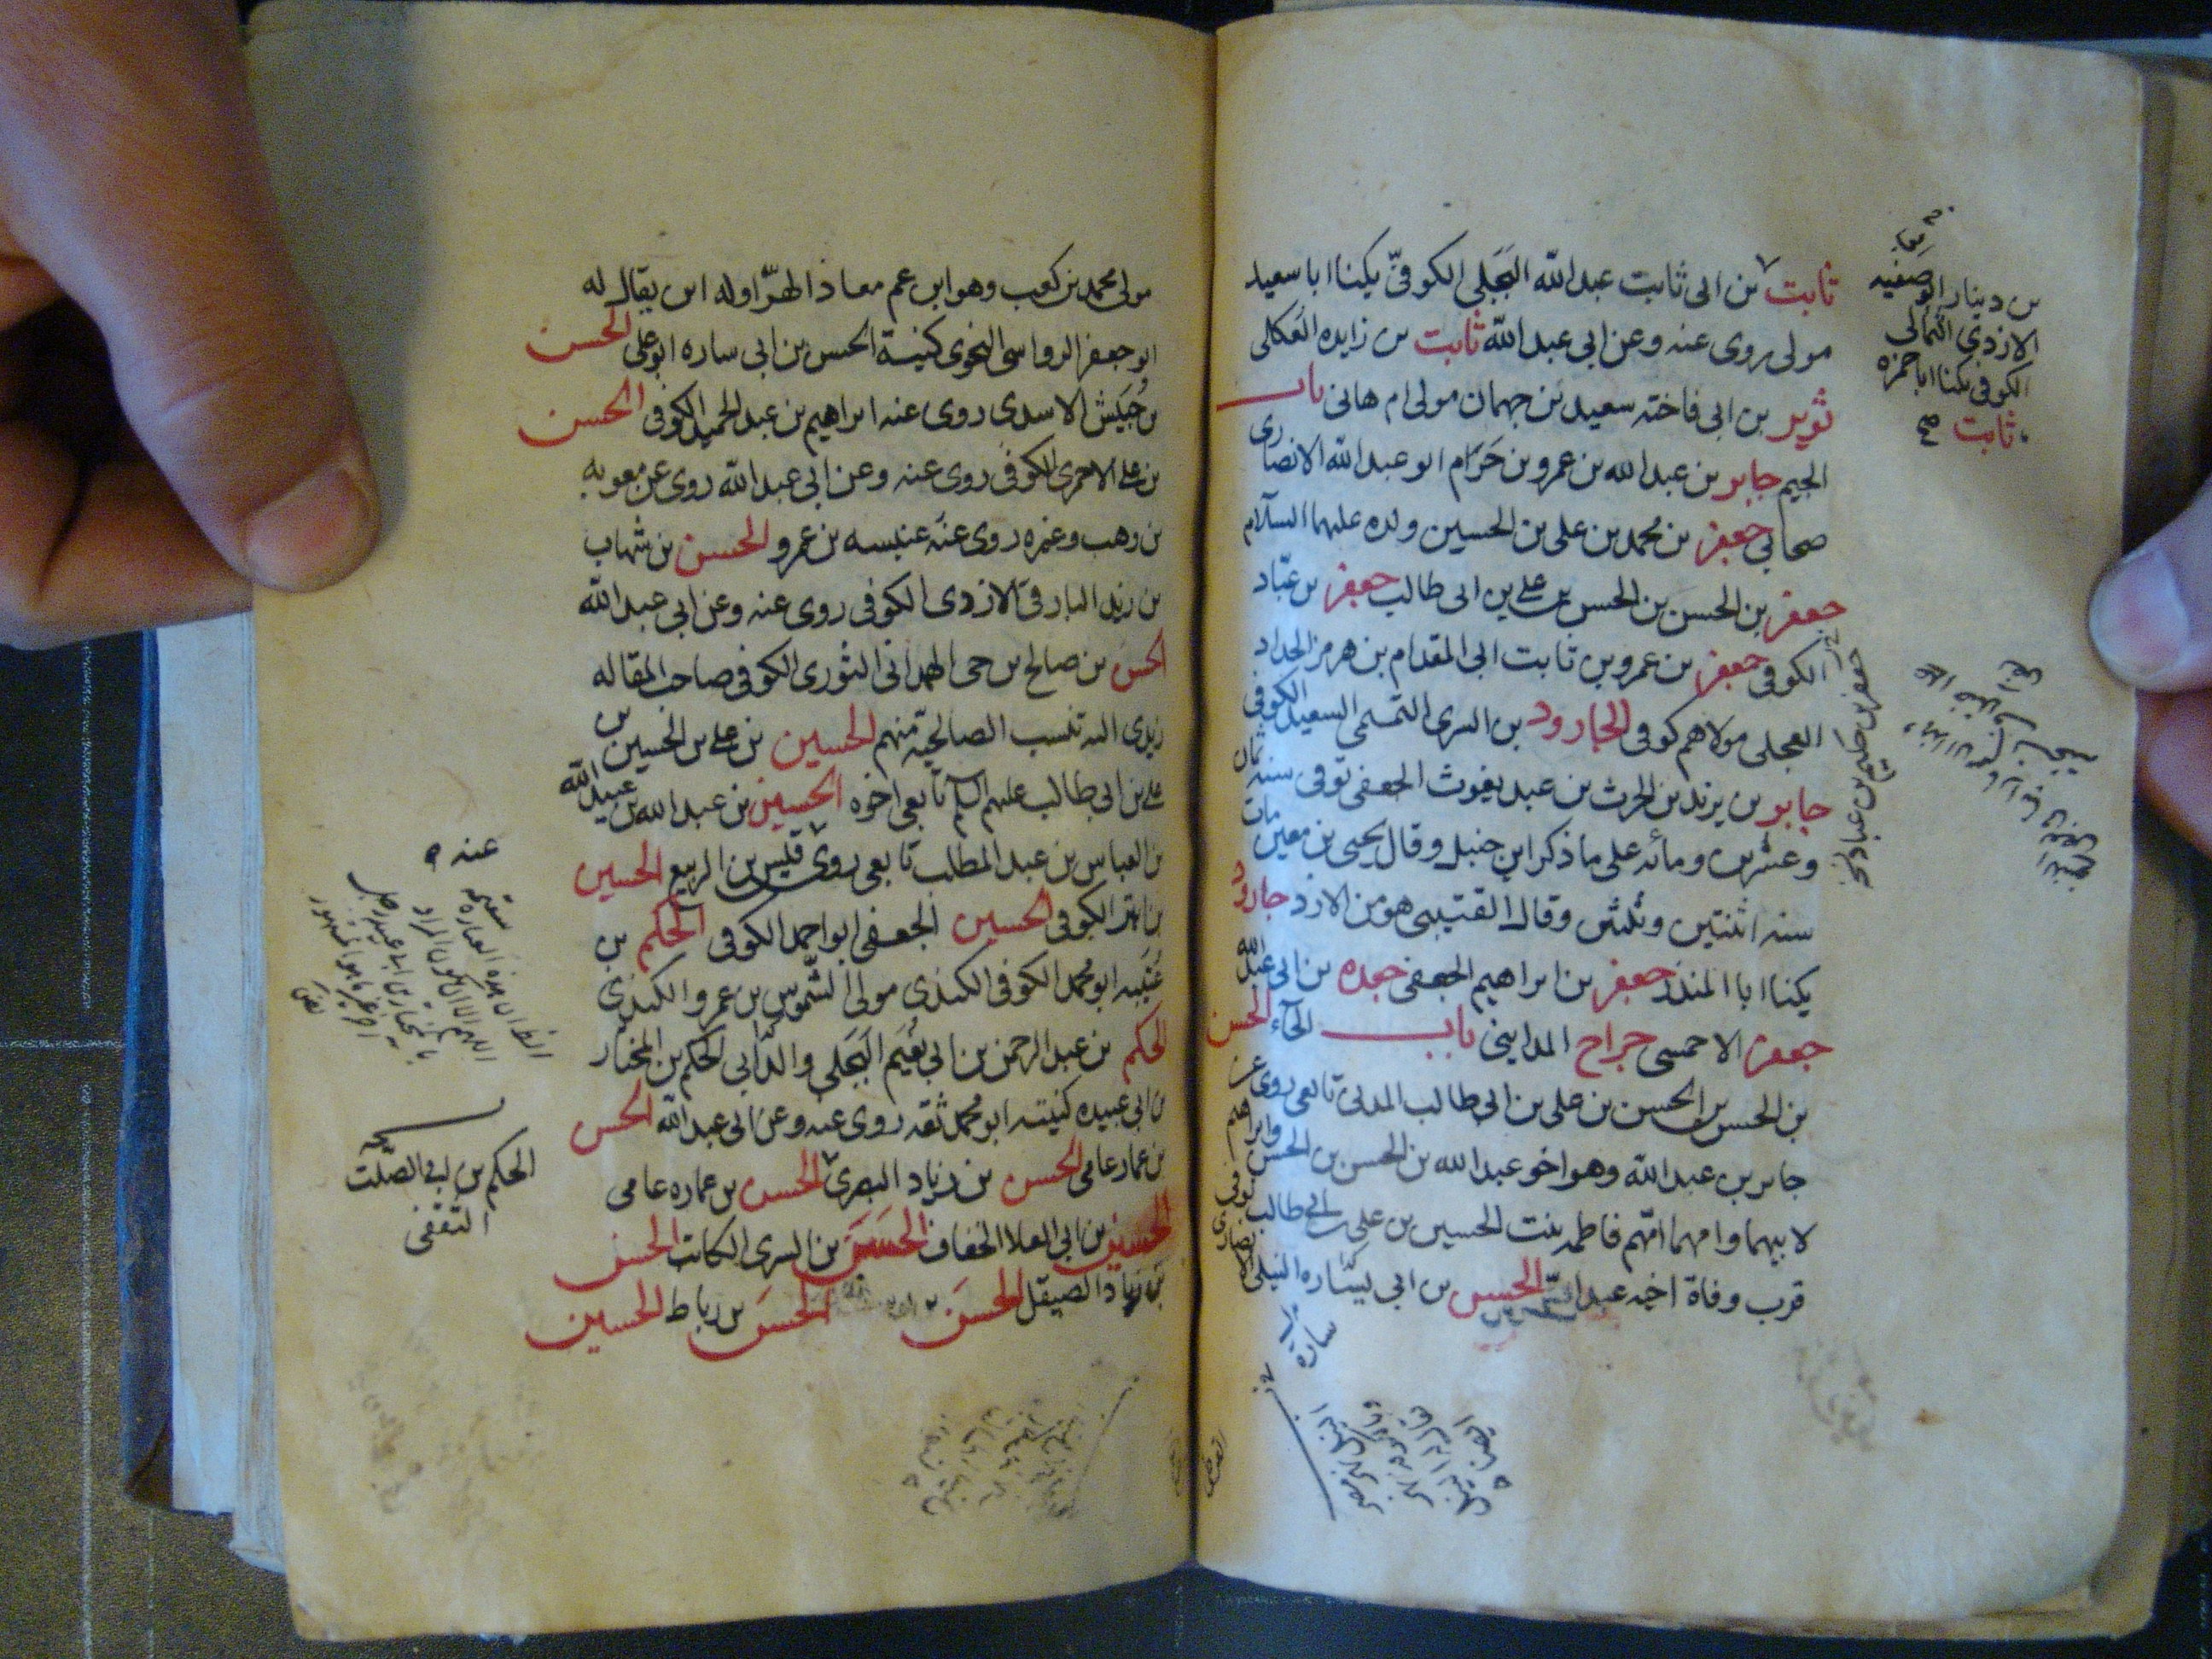 ثابت بن ابى ثابت عبد الله البَجَلى الكوفىّ يكنا ابا سعيد
مولى روى عنه وعن ابى عبد الله ثابت بن زايده العكلى
ثوير بن ابى فاخته سعيد بن جهمان مولى ام هانى باب
الجيم جابر بن عبد الله بن عمرو بن حَرَام ابو عبد الله الانصارى
صحابى جعفر بن محمد بن على بن الحسين ولده عليهما السلام
جعفر بن الحسن بن الحسن بن على بن ابى طالب جعفر بن عبّاد
الكوفى جعفر بن عمرو بن ثابت ابى المقدام بن هرمز الحداد
العجلى مولاهم كوفى الجارود بن السرى التميمى السعيدى الكوفى
جابر بن يزيد بن الحرث بن عبد يغوث الجعفى توفى سنه ثمان
وعشرين ومائه على ما ذكر ابن حنبل وقال يحيى بن معين مات
سنه اثنتين وثلثين وقال القتيبى هو من الازد جارود
يكنا ابا المنذر جعفر بن ابراهيم الجعفى جعده بن ابى عبد الله
جعفر الاحمسى جراح المداينى باب الحآء الحسن
بن الحسن بن الحسن بن على بن ابى طالب المدنى تابعى روى عن
جابر بن عبد الله وهو اخو عبد الله بن الحسن بن الحسن وابراهيم
لابيهما وامهما امّهم فاطمه بنت الحسين بن على بن ابى طالب توفى
قرب وفاة اخيه عبد الله الحسن بن ابى ساره النيلى الانصارى
بن دينار ابو صفيه
الازدى الثمالى
الكوفى يكنا ابا حمزه
ثابت صح
جعفر بن حكيم بن عباد
ساره
مولى محمد بن كعب وهو ابن عم معاذ الهرّا وله ابن يقال له
ابو جعفر الرواسى النحوى كنية الحسن بن ابى ساره ابو على الحسن
بن حُبَيش الاسدى روى عنه ابراهيم بن عبد الحميد الكوفى الحسن
بن على الاحمرى الكوفى روى عنه وعن ابى عبد الله روى عن معويه
بن وهب وغيره روى عنه عنبسه بن عمرو الحسن بن شهاب
بن زيد البارقى الازدى الكوفى روى عنه وعن ابى عبد الله
الحسن بن صالح بن حى الهمدانى الثورى الكوفى صاحب المقاله
زيدى اليه تنسب الصالحيّه منهم الحسين بن على بن الحسين بن
على بن ابى طالب عليهم السلم تابعى اخوه الحسين بن عبد الله بن عبيد الله
بن العباس بن عبد المطلب تابعى روى قليس بن الربيع الحسين
بن ابتر الكوفى الحسين الجعفى ابو احمد الكوفى الحكم بن
عُتَيبه ابو محمد الكوفى الكندى مولى الشموس بن عمرو الكندى
الحكم بن عبد الرحمن بن ابى نُعَيم البَجَلى والد ابى الحكم بن المختار
بن ابى عبيده كنيته ابو محمد ثقه روى عنه وعن ابى عبد الله الحسن
بن عمار عامى الحسن بن زياد البصرى الحسن بن عماره عامى
الحسين بن ابى العلا الخفاف الحسن بن السرى الكاتب الحسن
بن زياد الصيقل الحسن الحسن بن رباط الحسين
عنه
الحكم بن ابى الصلت
الثقفى